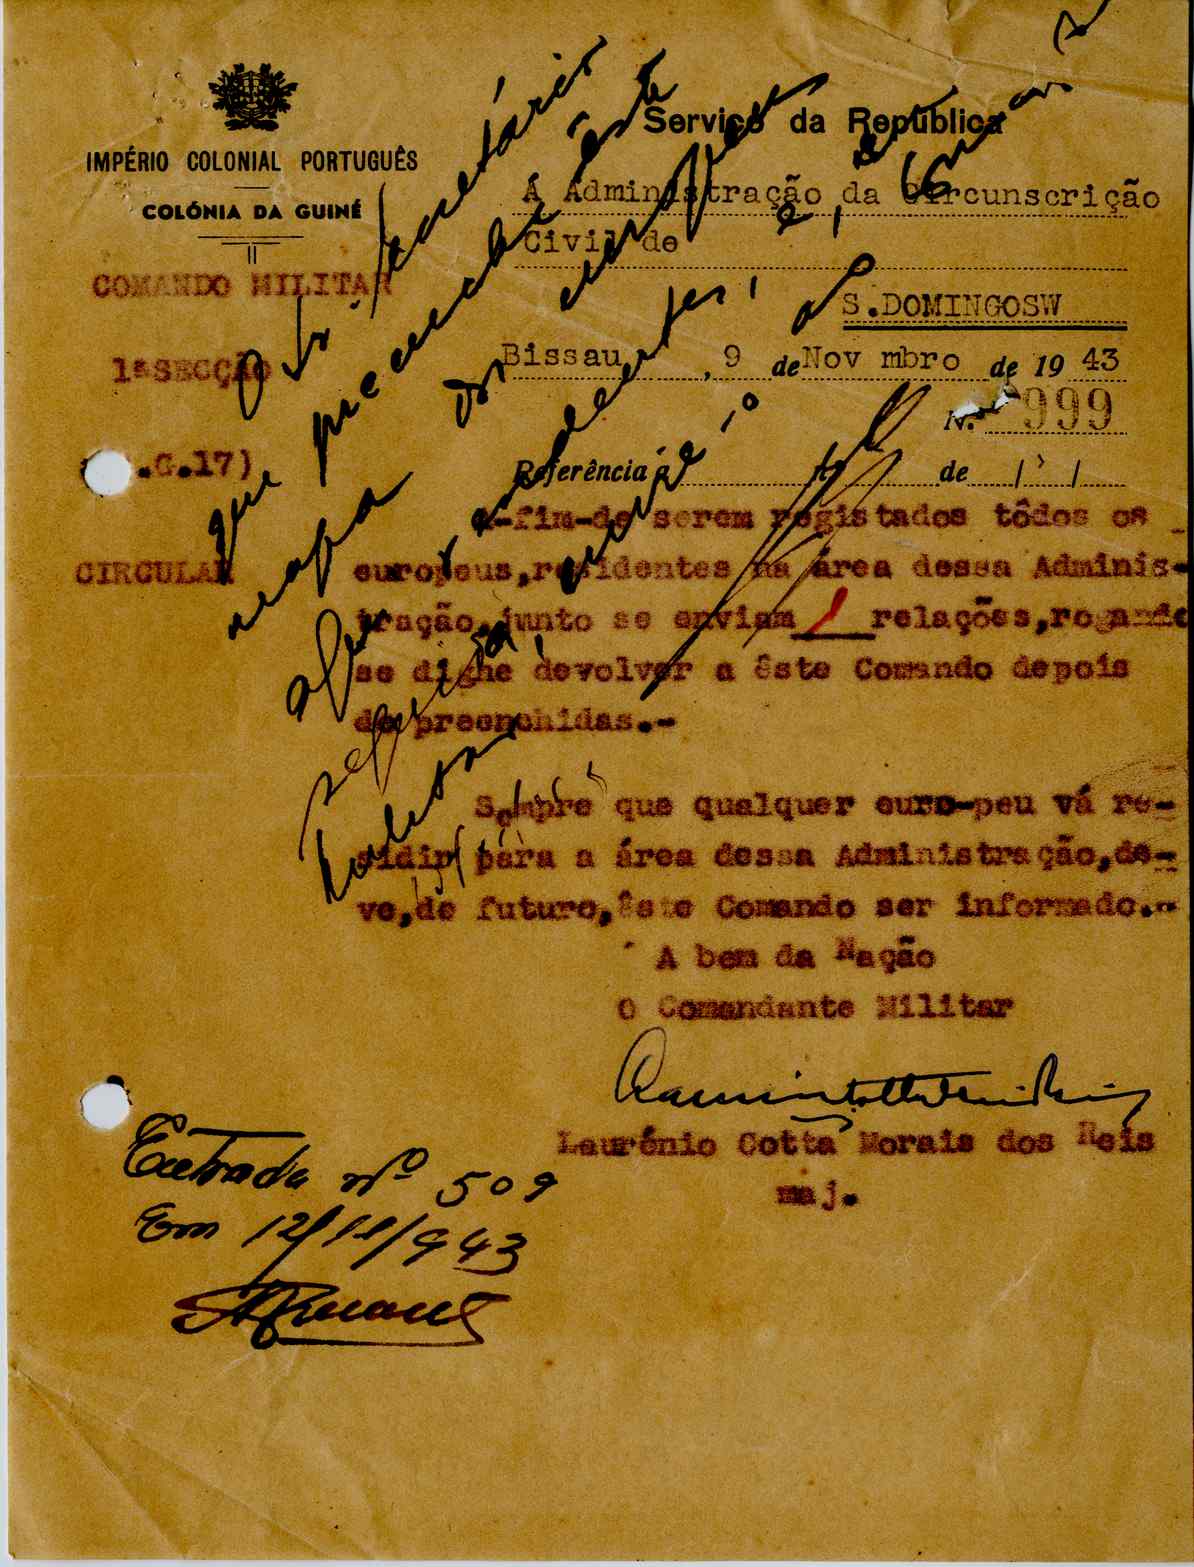 IMPÉRIO COLONIAL PORTUGUÊS
COLÓNIA DA GUINÉ
COMANDO MILITAR
1ªSECÇÃO
.G.17)
CIRCULAR
Serviço da República
Á Administração da Circunscrição
Civil de
S.DOMINGOSW
Bissau, 9 de Nov mbro de 1943
N.º 999
Referência de / /
A-fim-de serem registados tôdos os
europeus,residentes na área dessa Adminis-
tração,junto se enviam 1 relações,rogando
se digne devolver a êste Comando depois
de preenchidas.-
Sempre que qualquer euro-peu vá re-
sidir para a área dessa Administração,de-
ve,de futuro,êste Comando ser informado.-
A bem da Nação
O Comandante Militar
Laurénio Cotta Morais dos Reis
maj.
O Sr. Secretário
que preencha êste
mapa
Entrada nº 509
Em 12/11/943